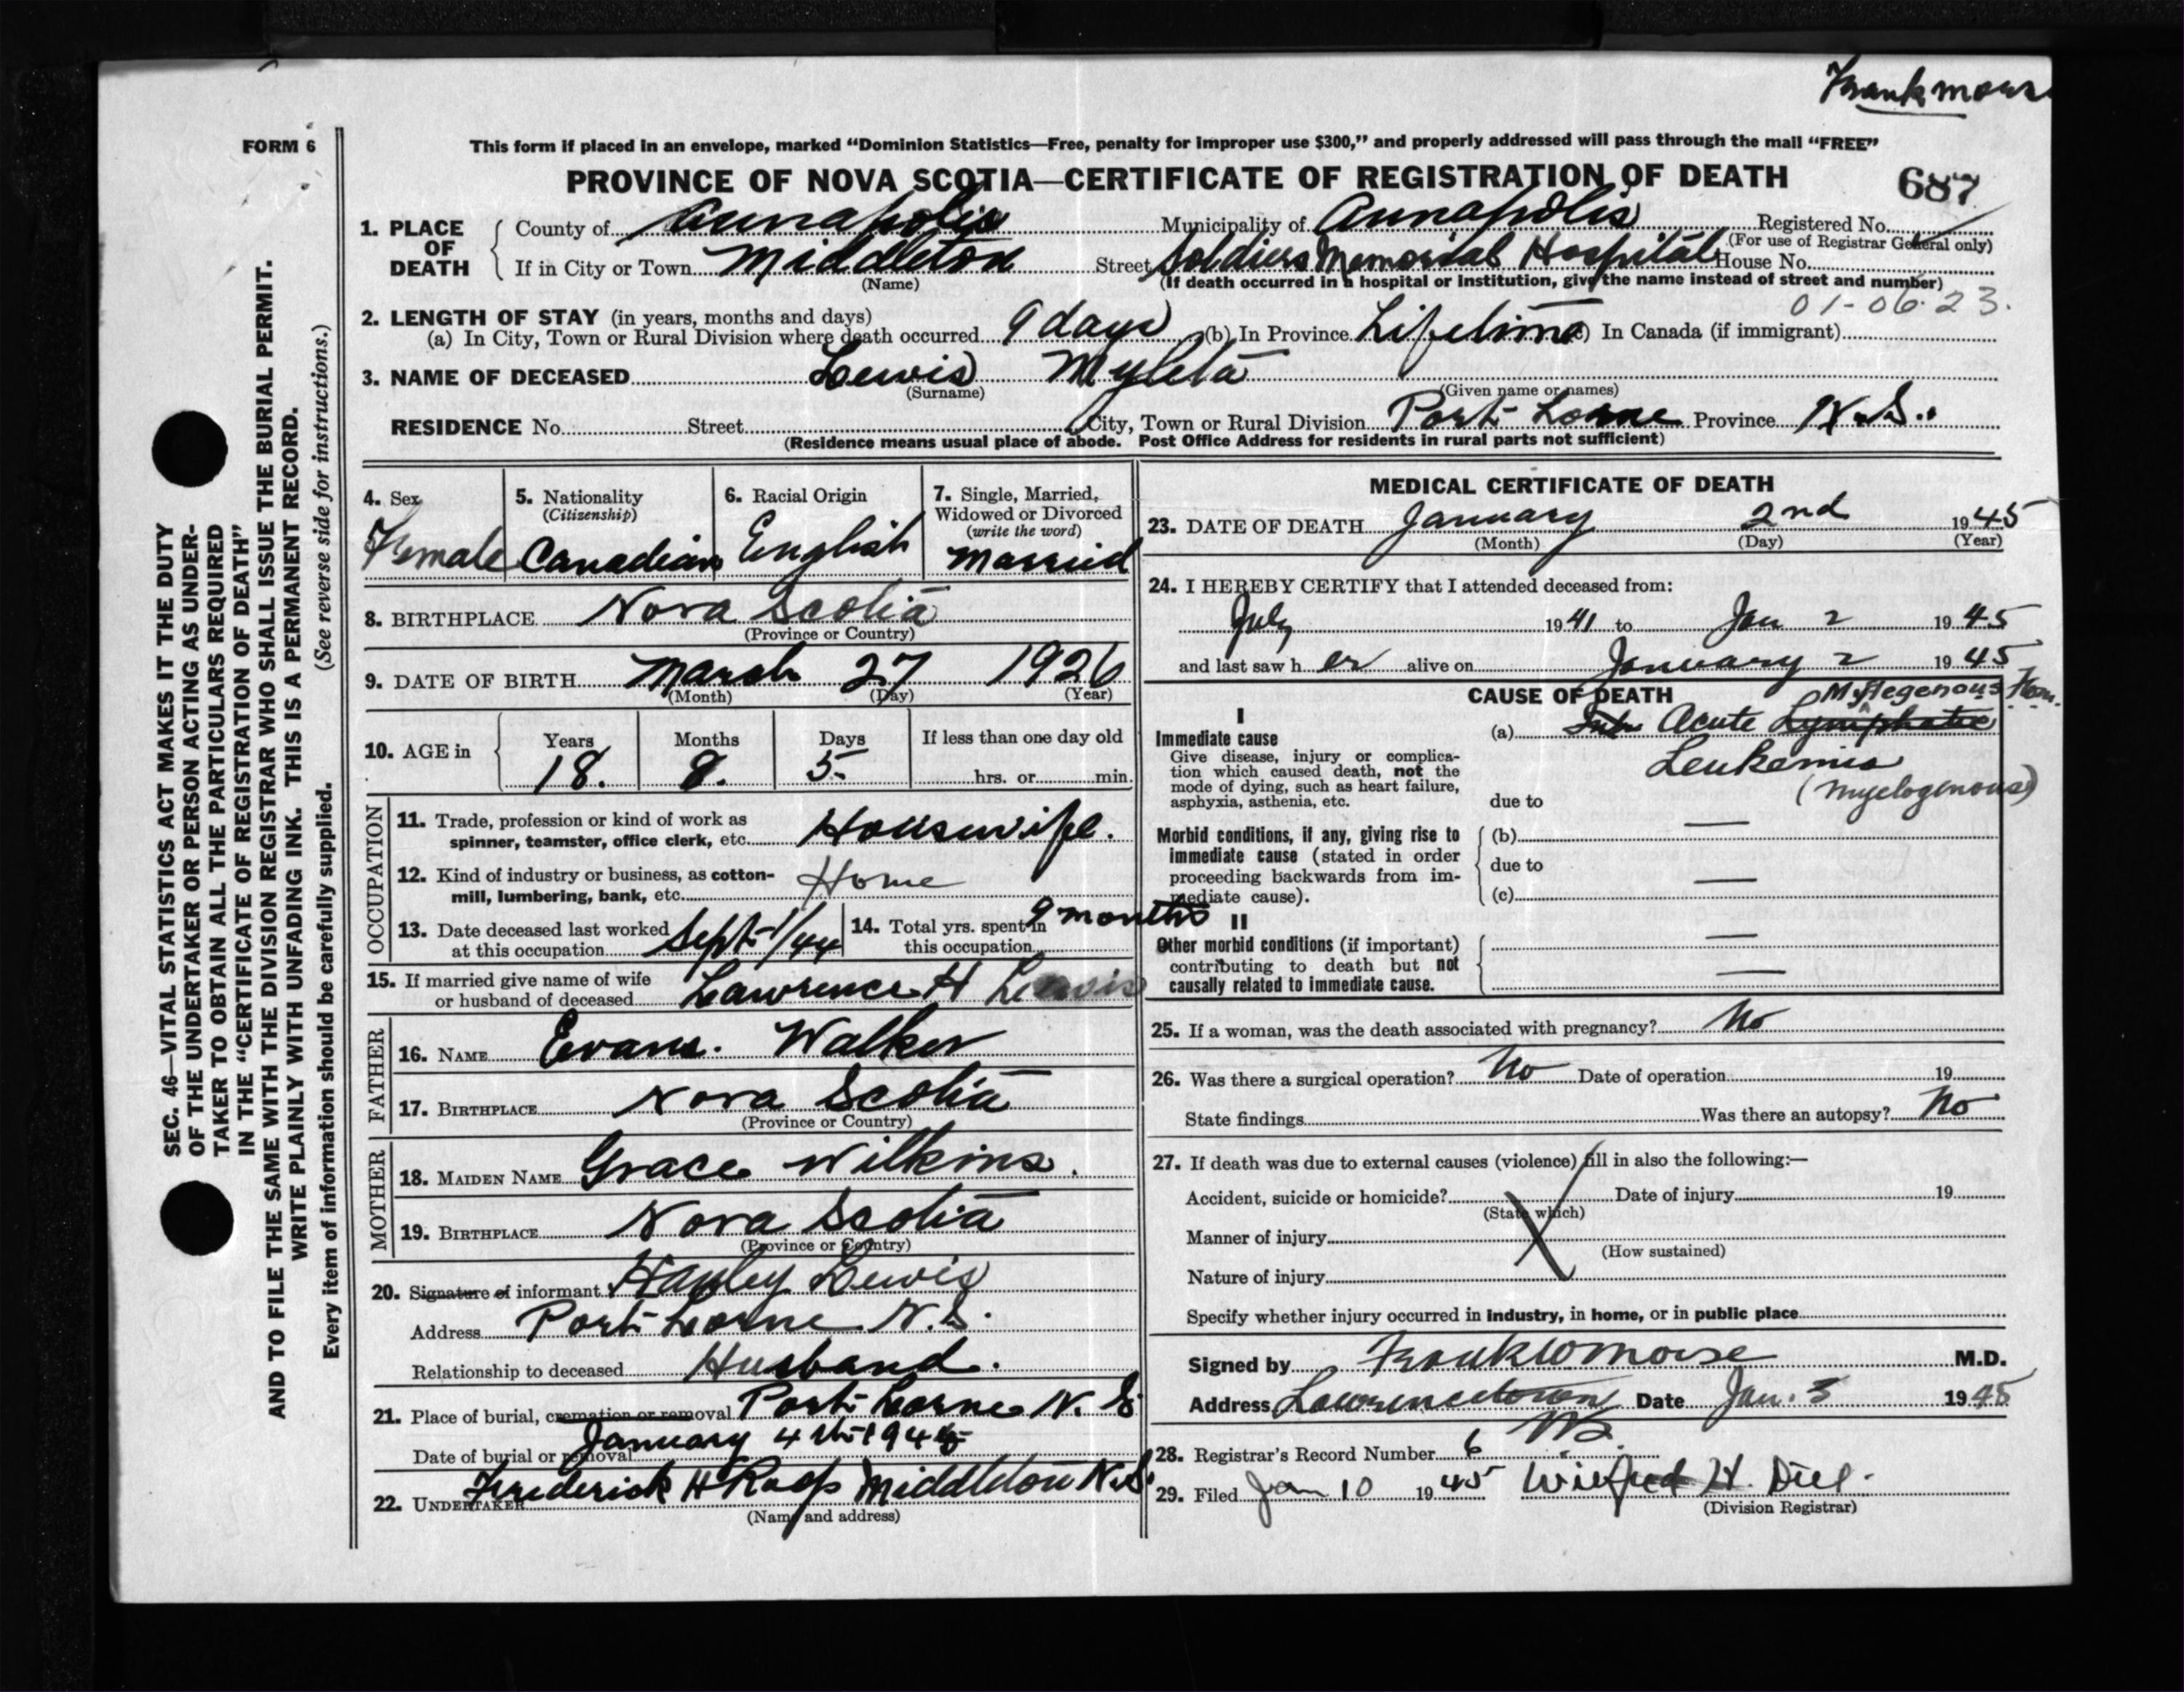 Frank Morse
FORM 6
This form if placed in an envelope, marked "Dominion Statistics—Free, penalty for improper use $300," and properly addressed will pass through the mail "FREE"
PROVINCE OF NOVA SCOTIA—CERTIFICATE OF REGISTRATION OF DEATH
687
1. PLACE OF DEATH
County of Annapolis Municipality of Annapolis Registered No.
(For use of Registrar General only)
If in City or Town Middleton Street Soldiers Memorial Hospital House No.
(Name) (If death occurred in a hospital or institution, give the name instead of street and number)
01-06-23.
2. LENGTH OF STAY (in years, months and days)
(a) In City, Town or Rural Division where death occurred 9 days (b) In Province Lifetime (c) In Canada (if immigrant)
3. NAME OF DECEASED Lewis Myleta
(Surname) (Given name or names)
RESIDENCE No. Street City, Town or Rural Division Port Lorne Province N.S.
(Residence means usual place of abode. Post Office Address for residents in rural parts not sufficient)
4. Sex Female
5. Nationality (Citizenship) Canadian
6. Racial Origin English
7. Single, Married, Widowed or Divorced (write the word) Married
8. BIRTHPLACE Nova Scotia
(Province or Country)
9. DATE OF BIRTH March 27 1926
(Month) (Day) (Year)
10. AGE in Years 18. Months 8. Days 5. If less than one day old hrs. or min.
OCCUPATION
11. Trade, profession or kind of work as spinner, teamster, office clerk, etc. Housewife.
12. Kind of industry or business, as cotton-mill, lumbering, bank, etc. Home
13. Date deceased last worked at this occupation Sept 1/44
14. Total yrs. spent in this occupation 9 months
15. If married give name of wife or husband of deceased Lawrence H Lewis
FATHER
16. NAME Evans. Walker
17. BIRTHPLACE Nova Scotia
(Province or Country)
MOTHER
18. MAIDEN NAME Grace Wilkins.
19. BIRTHPLACE Nova Scotia
(Province or Country)
20. Signature of informant Hanley Lewis
Address Port Lorne N.S.
Relationship to deceased Husband.
21. Place of burial, cremation or removal Port Lorne N. S
Date of burial or removal January 4th 1945
22. UNDERTAKER Frederick H Roop Middleton N.S.
(Name and address)
MEDICAL CERTIFICATE OF DEATH
23. DATE OF DEATH January 2nd 1945
(Month) (Day) (Year)
24. I HEREBY CERTIFY that I attended deceased from:
July 1941 to Jan 2 1945
and last saw her alive on January 2 1945
CAUSE OF DEATH
I
Immediate cause
Give disease, injury or complication which caused death, not the mode of dying, such as heart failure, asphyxia, asthenia, etc.
Mylegenous
(a) Acute Lymphatic
Leukemia
due to (Myelogenous)
Morbid conditions, if any, giving rise to immediate cause (stated in order proceeding backwards from immediate cause).
(b) —
due to
(c) —
II
Other morbid conditions (if important) contributing to death but not causally related to immediate cause.
—
—
25. If a woman, was the death associated with pregnancy? No
26. Was there a surgical operation? No Date of operation 19
State findings Was there an autopsy? No
27. If death was due to external causes (violence) fill in also the following:—
Accident, suicide or homicide? Date of injury 19
(State which)
Manner of injury
(How sustained)
Nature of injury
Specify whether injury occurred in industry, in home, or in public place
Signed by Frank W Morse M.D.
Address Lawrencetown Date Jan. 3 1945
28. Registrar's Record Number 6
29. Filed Jan 10 1945 Wilfred H. Diel.
(Division Registrar)
SEC. 46—VITAL STATISTICS ACT MAKES IT THE DUTY
OF THE UNDERTAKER OR PERSON ACTING AS UNDER-
TAKER TO OBTAIN ALL THE PARTICULARS REQUIRED
IN THE "CERTIFICATE OF REGISTRATION OF DEATH"
AND TO FILE THE SAME WITH THE DIVISION REGISTRAR WHO SHALL ISSUE THE BURIAL PERMIT.
WRITE PLAINLY WITH UNFADING INK. THIS IS A PERMANENT RECORD.
Every item of information should be carefully supplied. (See reverse side for instructions.)